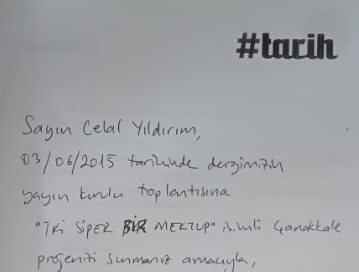 #tarih
Sayın Celal Yıldırım,
03/06/2015 tarihinde dergimizin
yayın kurulu toplantısına
"İki SİPER BİR MEKTUP" isimli Çanakkale
projenizi sunmanız amacıyla,